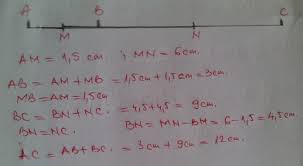 A B C
M N
AM = 1,5 cm ; MN = 6cm.
AB = AM + MB = 1,5cm + 1,5cm = 3cm.
MB = AM = 1,5cm
BC = BN + NC. = 4,5 + 4,5 = 9cm.
BN = NC. BN = MN - BM = 6 - 1,5 = 4,5cm.
AC = AB + BC. = 3cm + 9cm = 12cm.